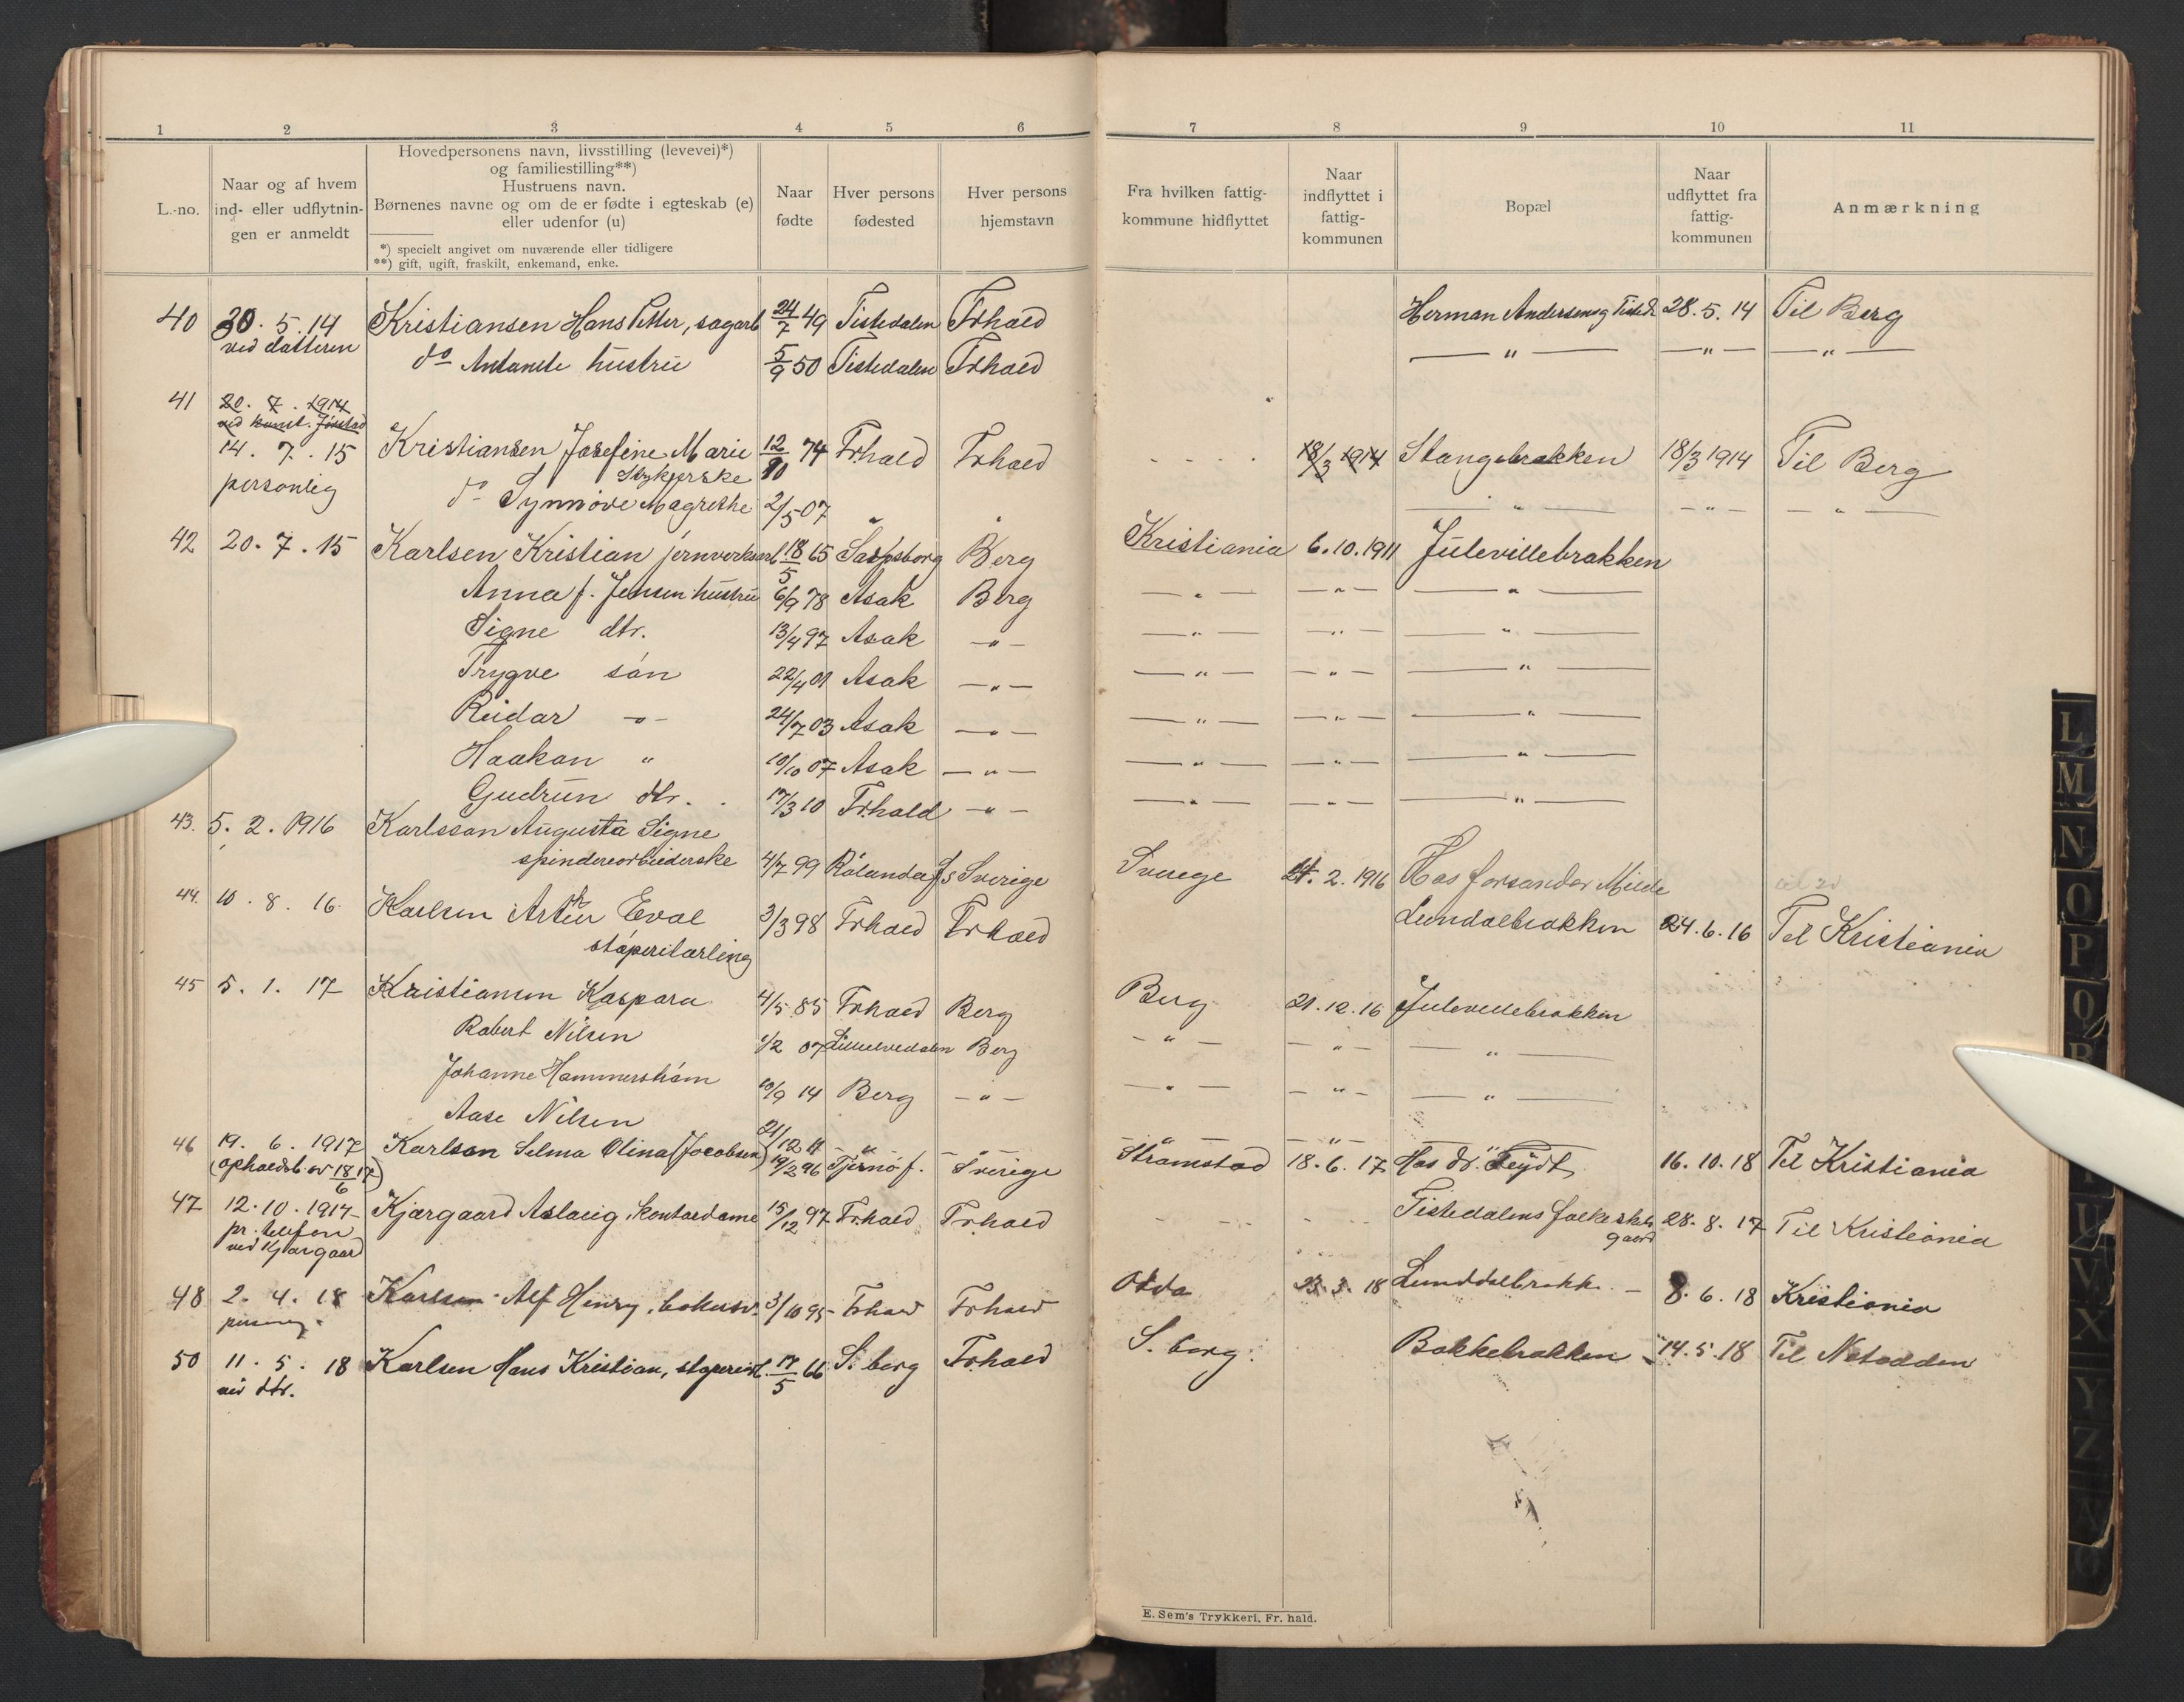 1 2 3 4 5 6 7 8 9 10 11
L.-no.
Naar og af hvem
ind- eller udflytnin-
gen er anmeldt
Hovedpersonens navn, livsstilling (levevei)*)
og familiestilling**)
Hustruens navn.
Børnenes navne og om de er fødte i egteskab (e)
eller udenfor (u)
*) specielt angivet om nuværende eller tidligere
**) gift, ugift, fraskilt, enkemand, enke.
Naar
fødte
Hver persons
fødested
Hver persons
hjemstavn
Fra hvilken fattig-
kommune hidflyttet
Naar
indflyttet i
fattig-
kommunen
Bopæl
Naar
udflyttet fra
fattig-
kommunen
Anmærkning
40 30. 5. 14 Kristiansen Hans Petter, sagarb 24/7 49 Tistedalen Frhald Herman Andersensg Tisted 28. 5. 14 Til Berg
ved datteren
do hustru 5/9 50 Tistedalen Frhald — " — — " — — " —
41 20. 7. 1914
ved konst. Jørstad
14. 7. 15 Kristiansen Josefine Marie 12/10 74 Frhald Frhald - - - - 18/3 1914 Stangebrakken 18/3 1914 Til Berg
Strykerske
personlig
do Synnøve Magrethe 2/5 07 " " — " — — " — — " —
42 20. 7. 15 Karlsen Kristian jernverksarb 18/5 65 Sarpsborg Berg Kristiania 6. 10. 1911 Julevillebrakken
Anna f. Jensen hustru 6/9 78 Asak Berg — " — — " — — " —
Signe dtr. 13/4 97 Asak — " — — " — — " — — " —
Trygve søn 22/4 01 Asak — " — — " — — " — — " —
Reidar — " — 24/7 03 Asak — " — — " — — " — — " —
Haakon " 10/10 07 Asak — " — — " — — " — — " —
Gudrun dtr. 17/3 10 Frhald — " — — " — — " — — " —
43. 5. 2. 1916 Karlsson Augusta Signe
spinderiarbeiderske 4/7 99 Rølanda fs Sverige Sverige 4. 2. 1916 Hos forsander Milde
44. 10. 8. 16. Karlsen Artur Eval 3/3 98 Frhald Frhald Lundalbrakken 24. 6. 16 Til Kristiania
støperilærling
45 5. 1. 17 Kristiansen Kaspara 4/5 85 Frhald Berg Berg 21. 12. 16 Julevillebrakken
Robert Nilsen 1/2 07 Berg — " — — " — — " —
Johanne Hammerstrøm 10/9 14 Berg — " — — " — — " — — " —
Aase Nilsen 21/12 11 — " — — " — — " — "
46 19. 6. 1917 Karlson Selma Olina (Jacobsen) 19/2 96 Tjernø f. Sverige Strømstad 18. 6. 17 Hos dr. Feydt 16. 10. 18 Til Kristiania
(opholdsb. av 18/6 17)
47 12. 10. 1917 Kjærgaard Aslaug, kontordame 15/12 97 Frhald Frhald - - - - Tistedalens folkeskole 28. 8. 17 Til Kristiania
gaard
pr. telefon
ved Kjærgaard
48 2. 4. 18 Karlsen Alf Henry, 3/10 95 Frhald Frhald Odda 23. 3. 18 Lunddalbrakk. — 8. 6. 18 Kristiania
50 11. 5. 18 Karlsen Hans Kristian, støperiarb. 17/5 66 S. berg Frhald S. borg. Bakkebrakken 14. 5. 18 Til Notodden
ved dtr.
E. Sem's Trykkeri, Fr. hald.
L
M
N
O
P
Q
R
U
V
X
Y
Z